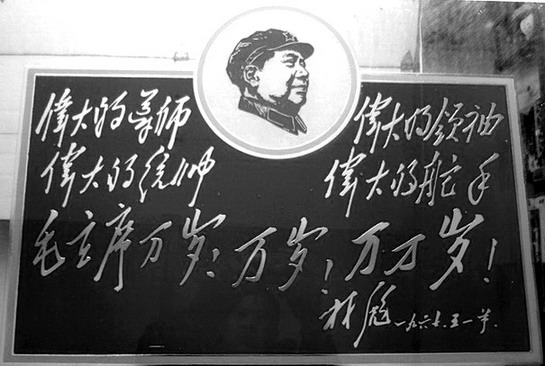 偉大的導师 偉大的领袖
偉大的统帅 偉大的舵手
毛主席万岁!万岁!万万岁!
林彪 一九六七.五一节.